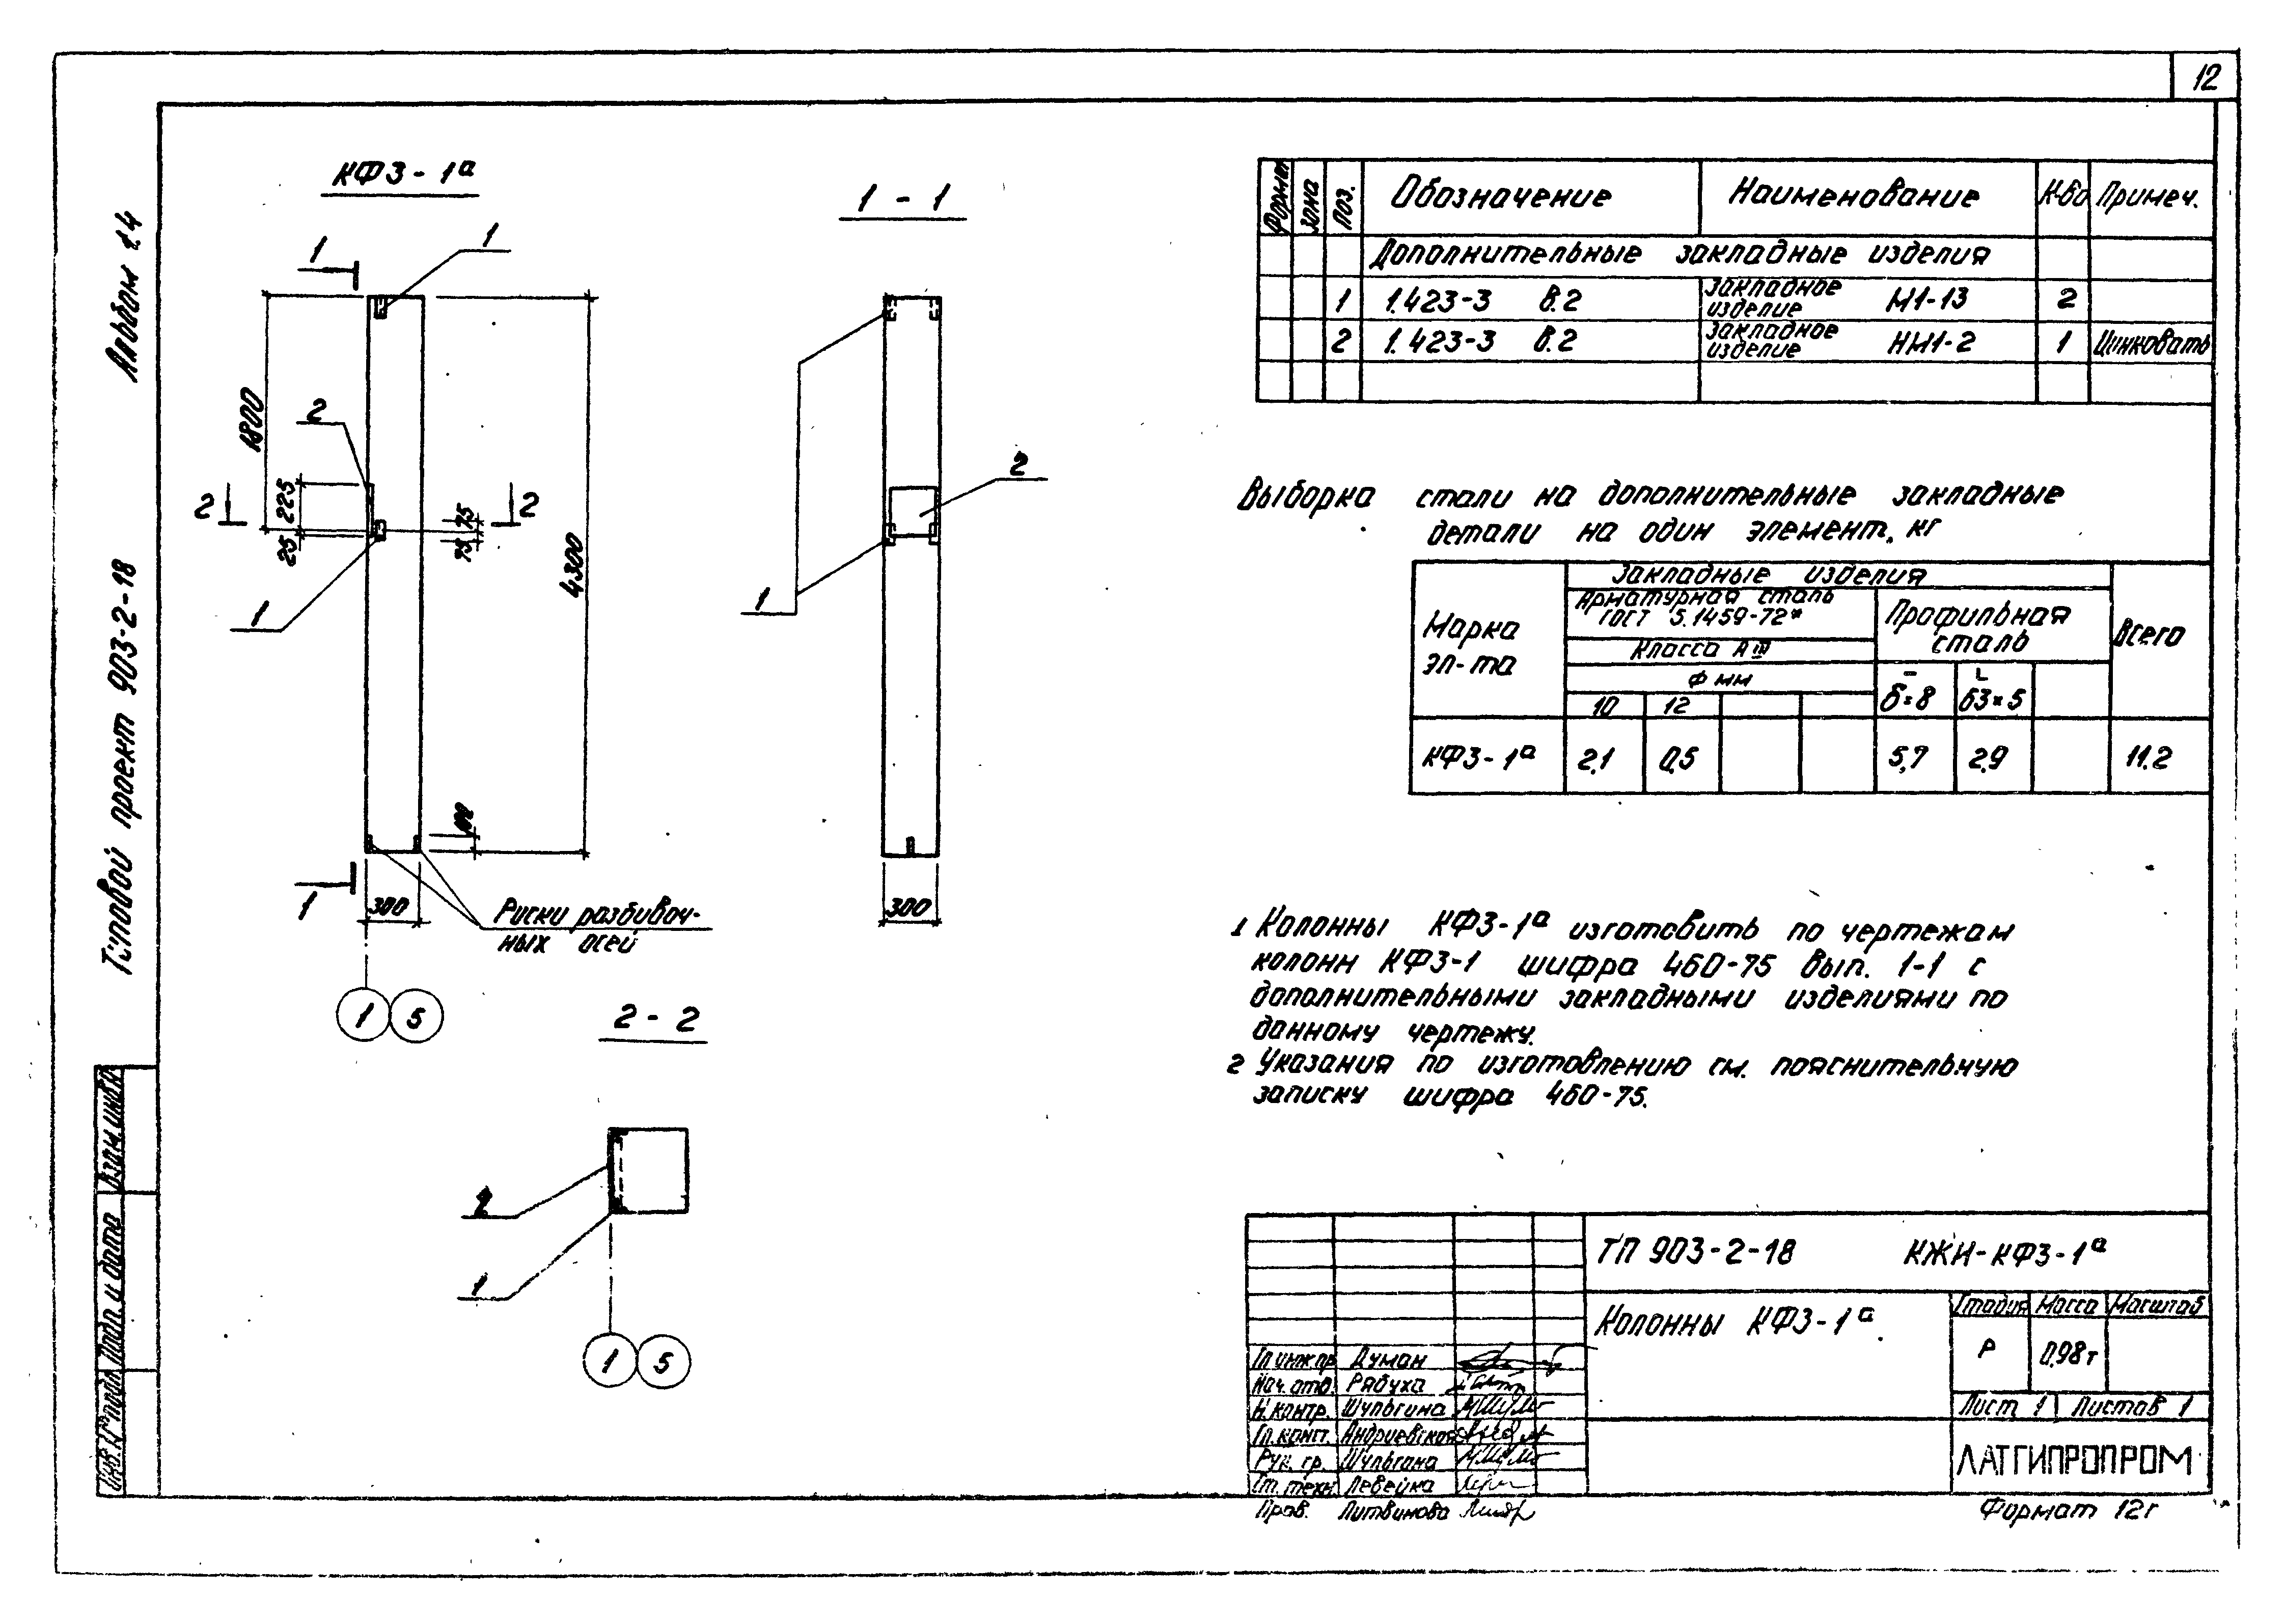 12
Альбом 1.4
Типовой проект 903-2-18
Взам. инв. №
Подп. и дата
Инв. № подл.
КФ3-1а
1
1
1800
2
225
25
2
2
75
75
4300
1
100
1
300
Риски разбивоч-
ных осей
1 5
1 - 1
2
1
300
2 - 2
2
1
1 5
Формат Зона Поз. Обозначение Наименование К-во Примеч.
Дополнительные закладные изделия
1 1.423-3 В.2 Закладное изделие М1-13 2
2 1.423-3 В.2 Закладное изделие НМ1-2 1 Цинковать
Выборка стали на дополнительные закладные
детали на один элемент, кг
Марка эл-та Закладные изделия Всего
Арматурная сталь ГОСТ 5.1459-72* Профильная сталь
Класса АIII
Ф мм
10 12 δ=8 63×5
КФ3-1а 2,1 0,5 5,7 2,9 11.2
1 Колонны КФ3-1а изготовить по чертежам
колонн КФ3-1 шифра 460-75 вып. 1-1 с
дополнительными закладными изделиями по
данному чертежу.
2 Указания по изготовлению см. пояснительную
записку шифра 460-75.
ТП 903-2-18 КЖИ-КФ3-1а
Колонны КФ3-1а
Стадия Масса Масштаб
Р 0,98т
Лист 1 Листов 1
ЛАТГИПРОПРОМ
Гл инж пр Думан
Нач. отд. Рябуха
Н. контр. Шульгина
Гл. конст. Андриевская
Рук. гр. Шульгина
Ст. техн. Левейка
Пров. Литвинова
Формат 12г